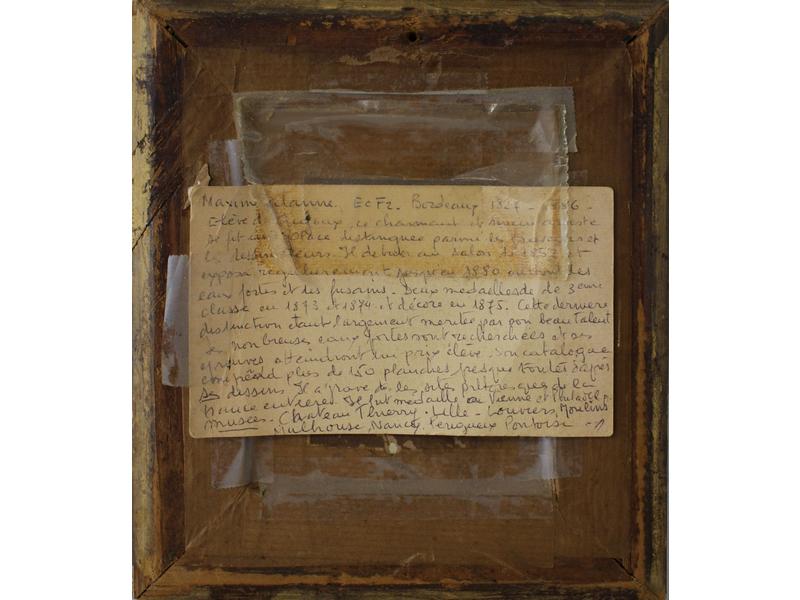 Maxim Lalanne. Ec Fr. Bordeaux 1827 - 1886 -
Elève de Gigoux, ce charmant et artiste
se fit une place distinguée parmi les graveurs et
les dessinateurs. Il debute au salon de 1852 et
exposa regulierement jusqu'en 1880 des
eaux fortes et des fusains. Deux medailles de 3eme
classe en 1873 et 1874. et décoré en 1875. Cette derniere
distinction etant largement meritée par son beau talent
ses nombreuses eaux fortes sont recherchées et ses
epreuves atteindront un prix élevé. Son catalogue
comprend plus de 150 planches presque toutes d'après
ses dessins. Il a gravé de les sites pittoresques de la
France entiere. Il fut medaillé a Vienne et Philadelp.
Musées. Chateau Thierry. Lille. Louviers, Moulins
Mulhouse, Nancy, Perigueux Pontoise